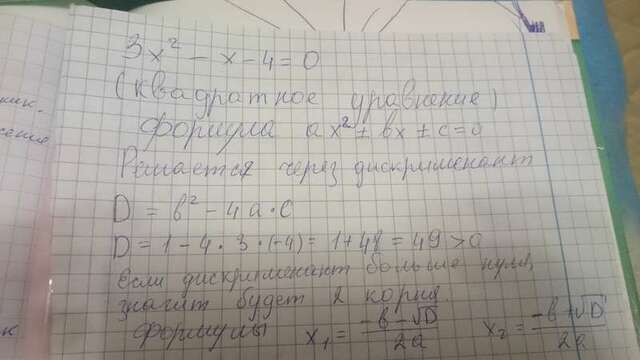 3x² - x - 4 = 0
(квадратное уравнение)
формула ax² + bx + c = 0
Решается через дискременант
D = b² - 4a·c
D = 1 - 4·3·(-4) = 1 + 48 = 49 > 0
Если дискременант больше нуля,
значит будет 2 корня.
формулы x₁ = (-b - √D)/2a x₂ = (-b + √D)/2a